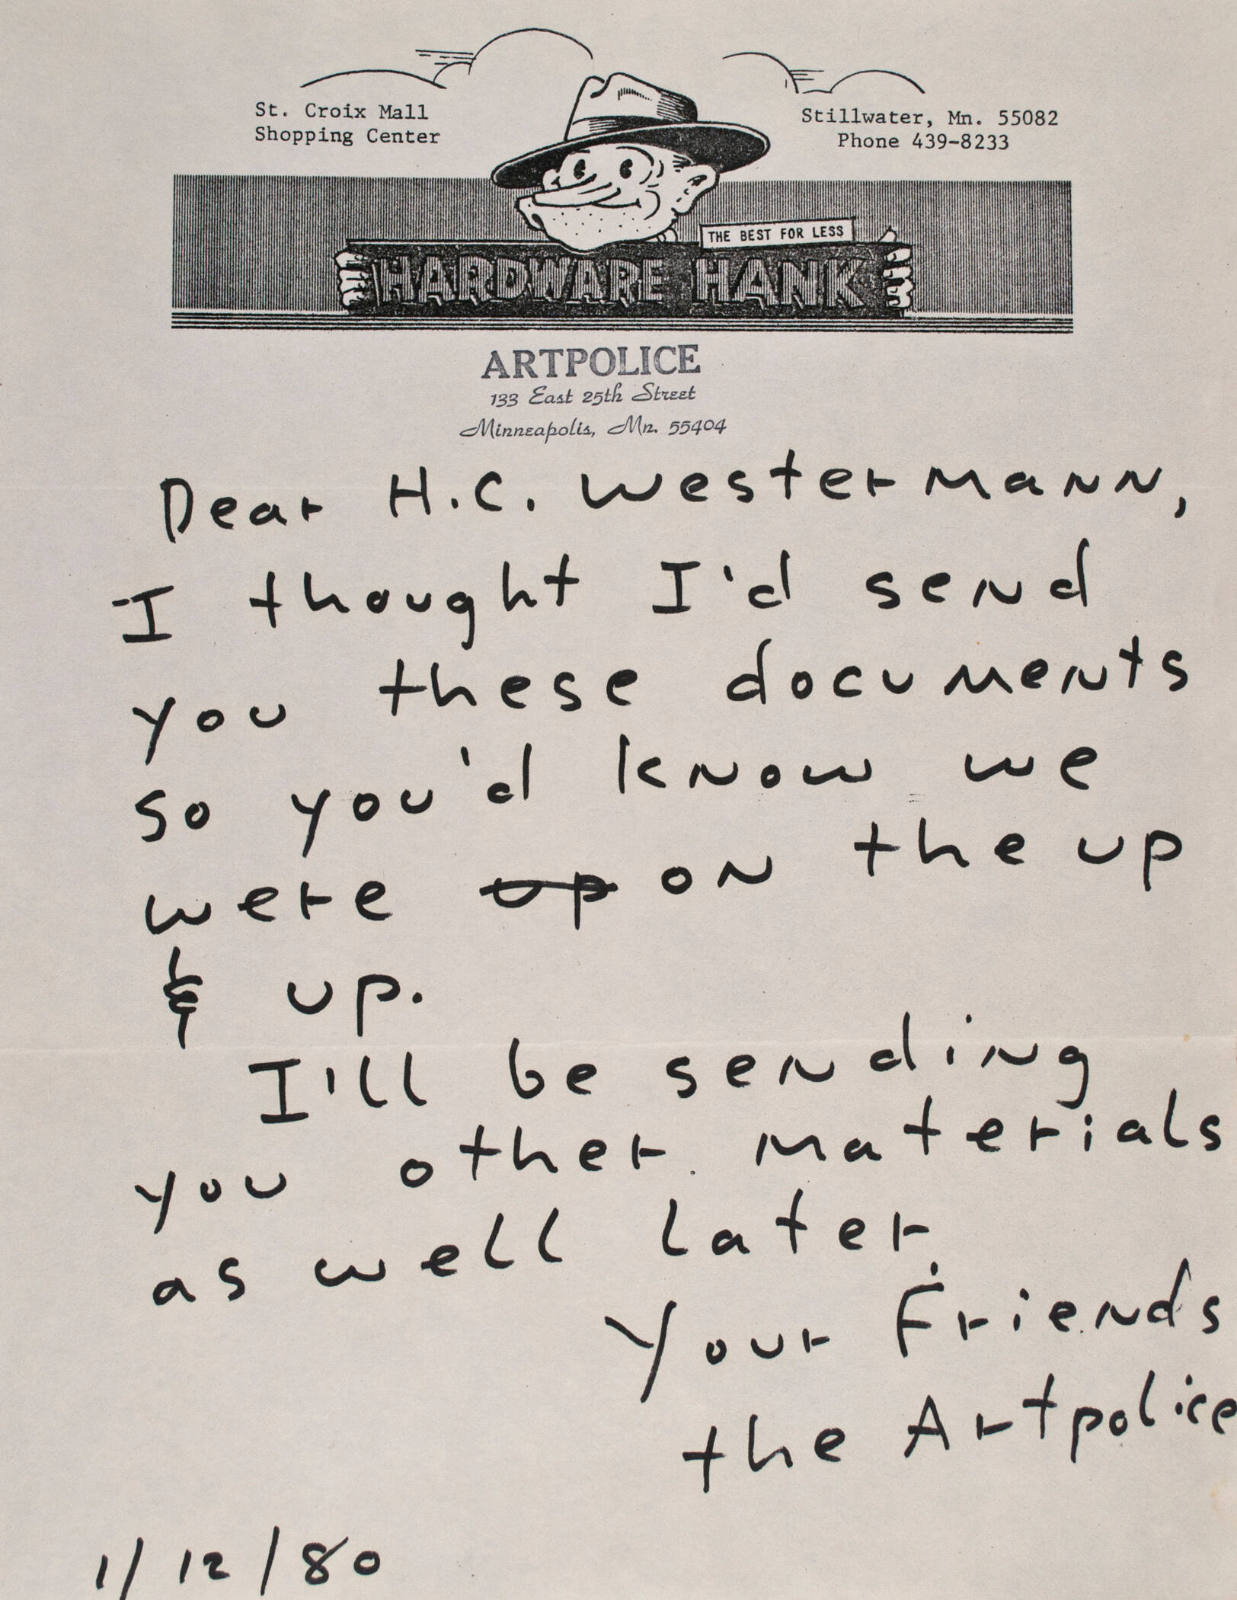 St. Croix Mall
Shopping Center
Stillwater, Mn. 55082
Phone 439-8233
THE BEST FOR LESS
HARDWARE HANK
ARTPOLICE
133 East 25th Street
Minneapolis, Mn. 55404
Dear H.C. Westermann,
I thought I'd send
you these documents
so you'd know we
were up on the up
& up.
I'll be sending
you other materials
as well later.
Your Friends
the Artpolice
1/12/80